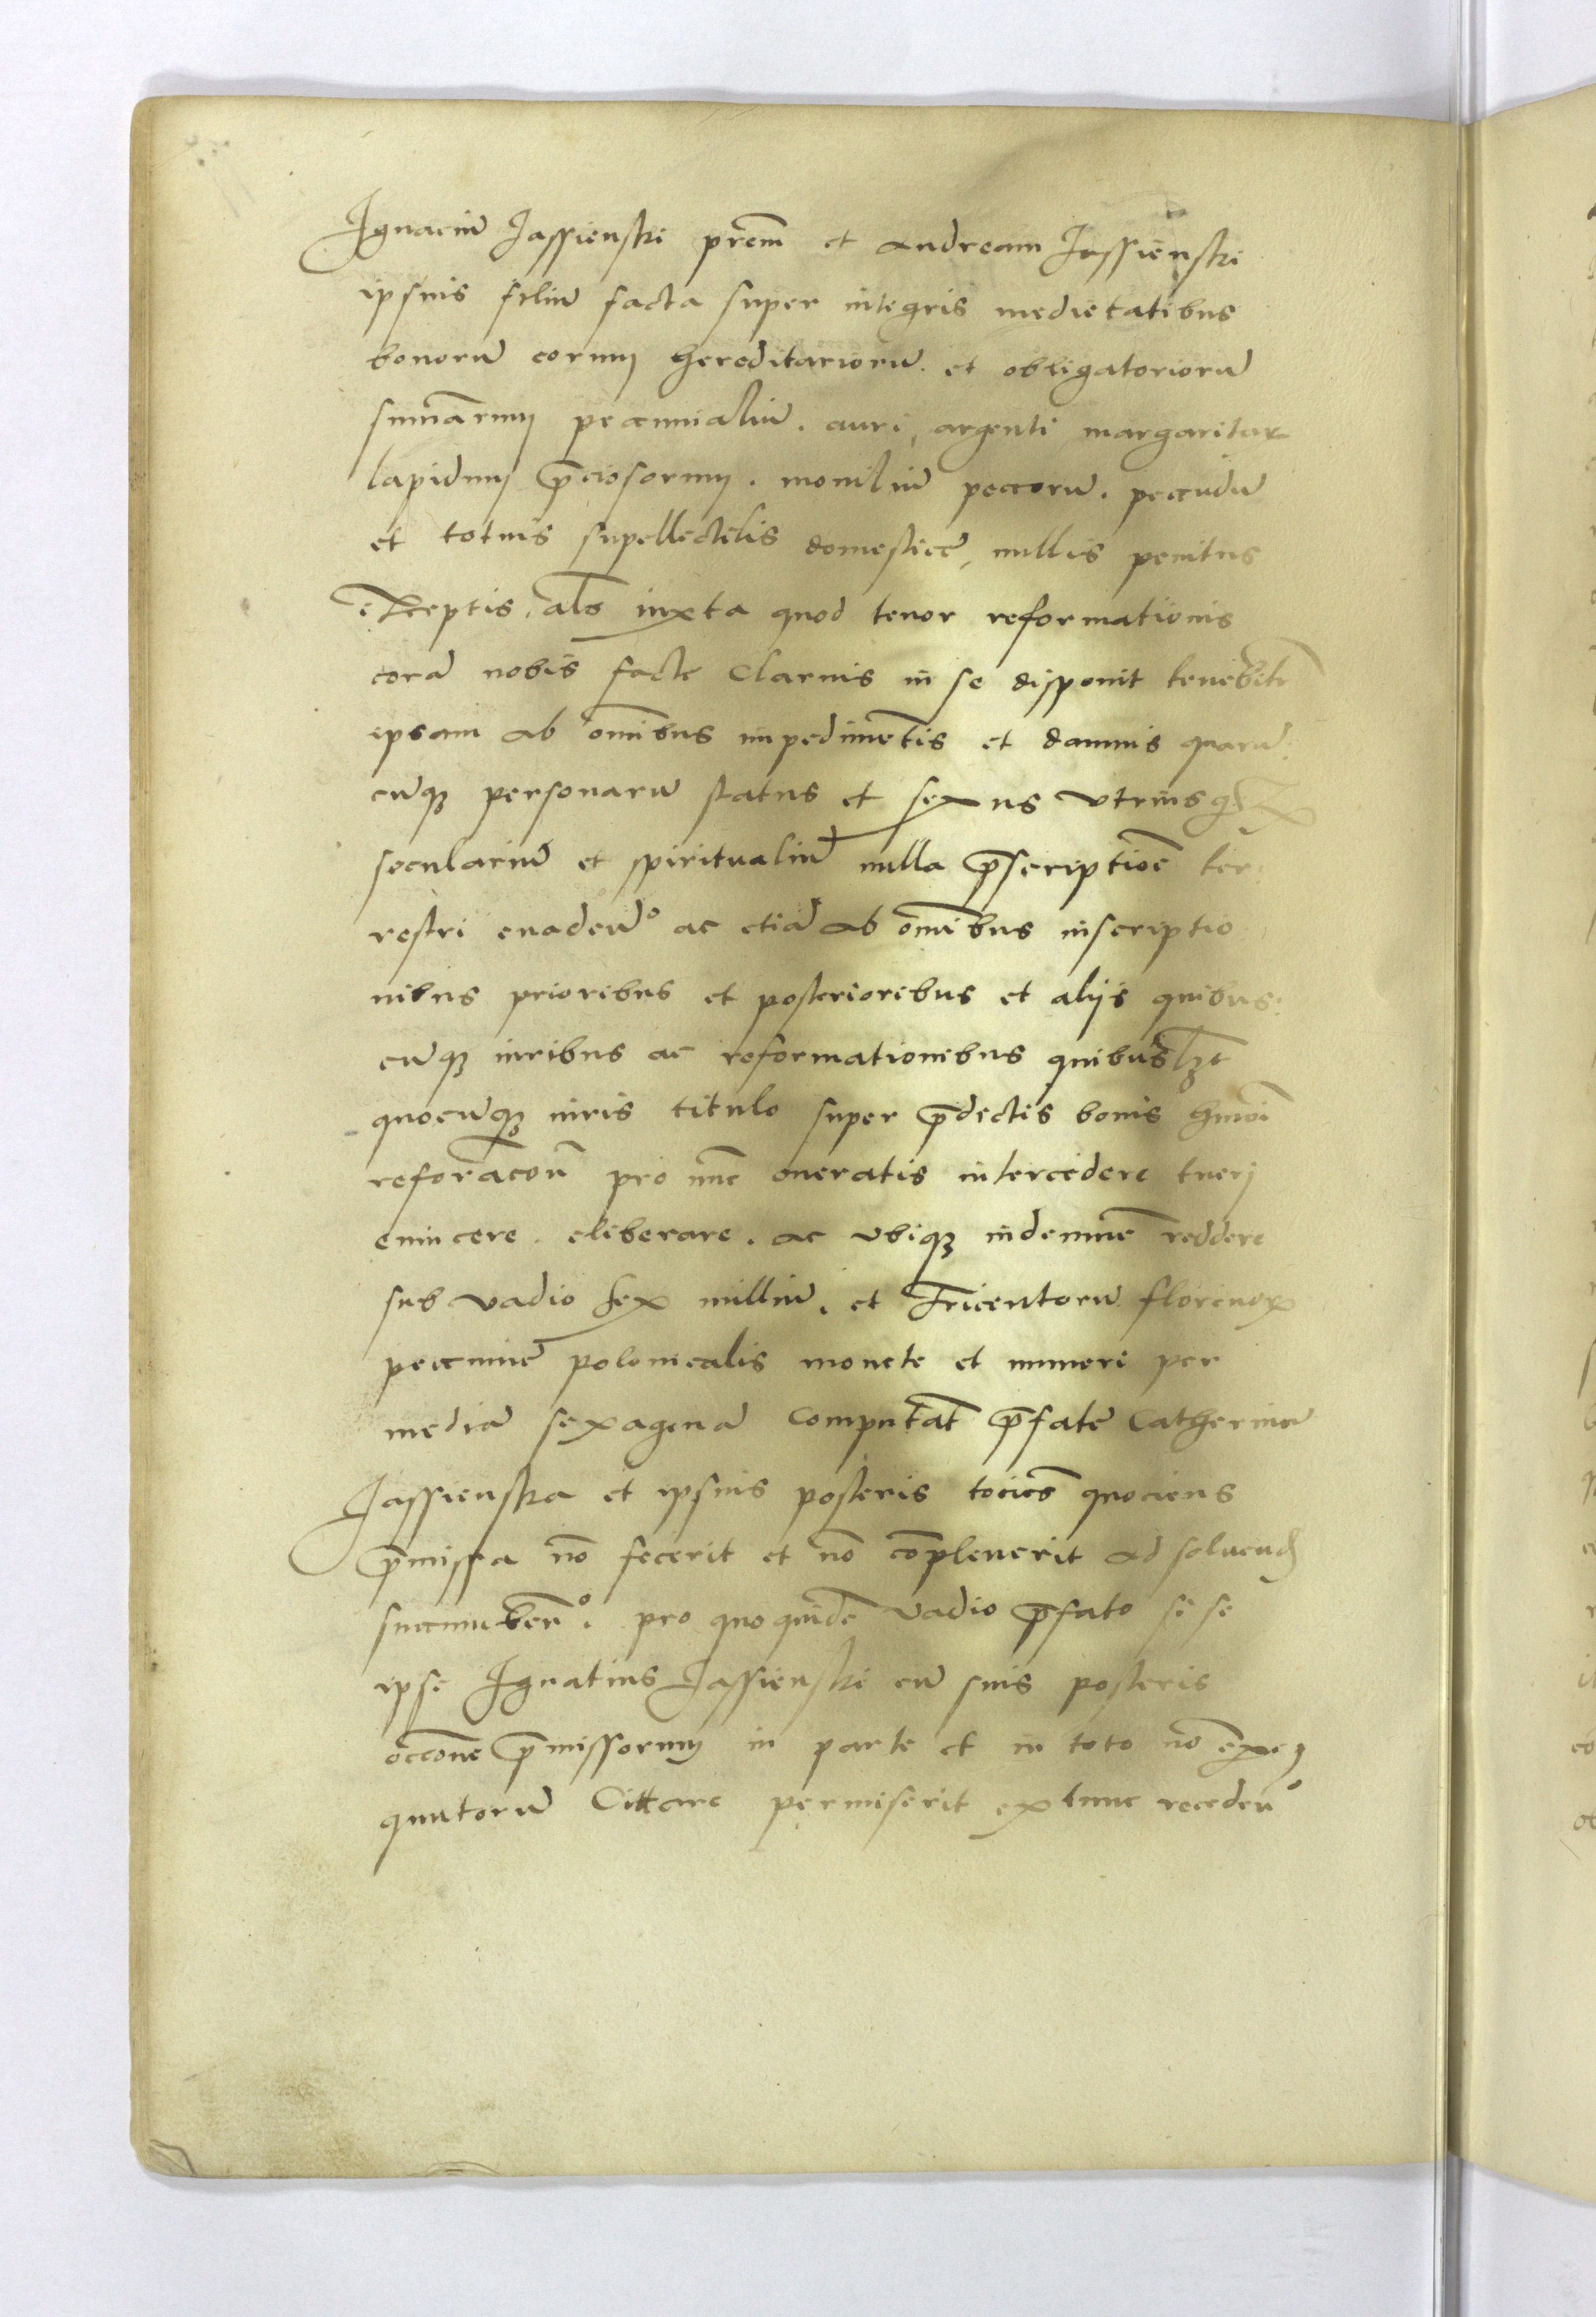 Ignaciū Jassienski prem̄ et Andream Jassienski
ipsius filiū facta super integris medietatibus
bonorū eorum hereditariorū et obligatoriorū
sum̄arum pecunialiū. auri, argenti margaritar
lapidum p̄ciosorum. moniliū pecorū. pecudū
et totius supellectilis domestice, nullis penitus
exceptis, al̄s iuxta quod tenor reformationis
corā nobis facte clarius in se disponit tenebit̄
ipsam ab om̄ibus impedimētis et damnis quarū
cūq3 personarū status et sexus vtriusq3
seculariū et spiritualiū nulla p̄scriptioē ter
restri euadeñ° ac etiā ab om̄ibus inscriptio
nibus prioribus et posterioribus et alijs quibus
cūq3 iuribus ac reformationibus quibusl3t
quocūq3 iuris titulo super p̄dictis bonis hm̄oi
reform̄acoñ pro nūc oneratis intercedere tueri
euincere. eliberare. ac vbiq3 indemnē reddere
sub vadio sex milliū. et Tricentorū florenor
pecunie polonicalis monete et numeri per
mediā sexagenā computat̄ p̄fate Catherine
Jassienska et ipsius posteris tociēs quociens
p̄missa nō fecerit et nō cōpleuerit ad soluend
succumbeñ°. pro quo quidē vadio p̄fato se se
ipse Ignatius Jassienski cū suis posteris
occōne p̄missorum in parte et in toto nō exe
quutorū Cittare permiserit ex tunc recedeñ°